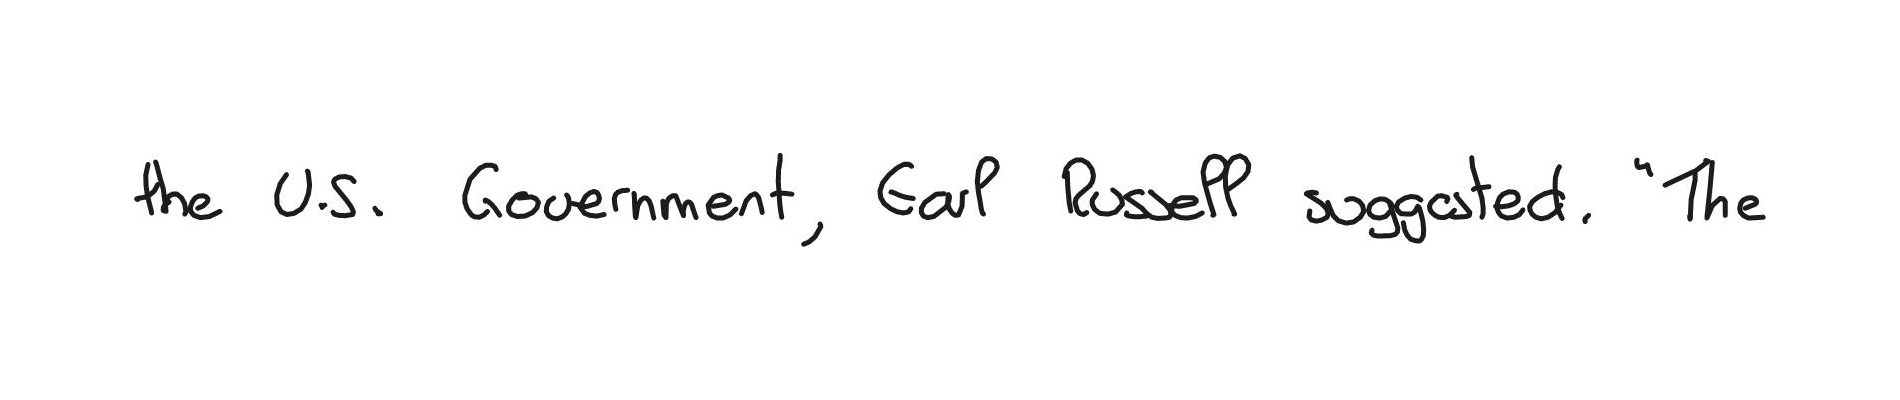 the U.S. Government, Earl Russell suggested. "The